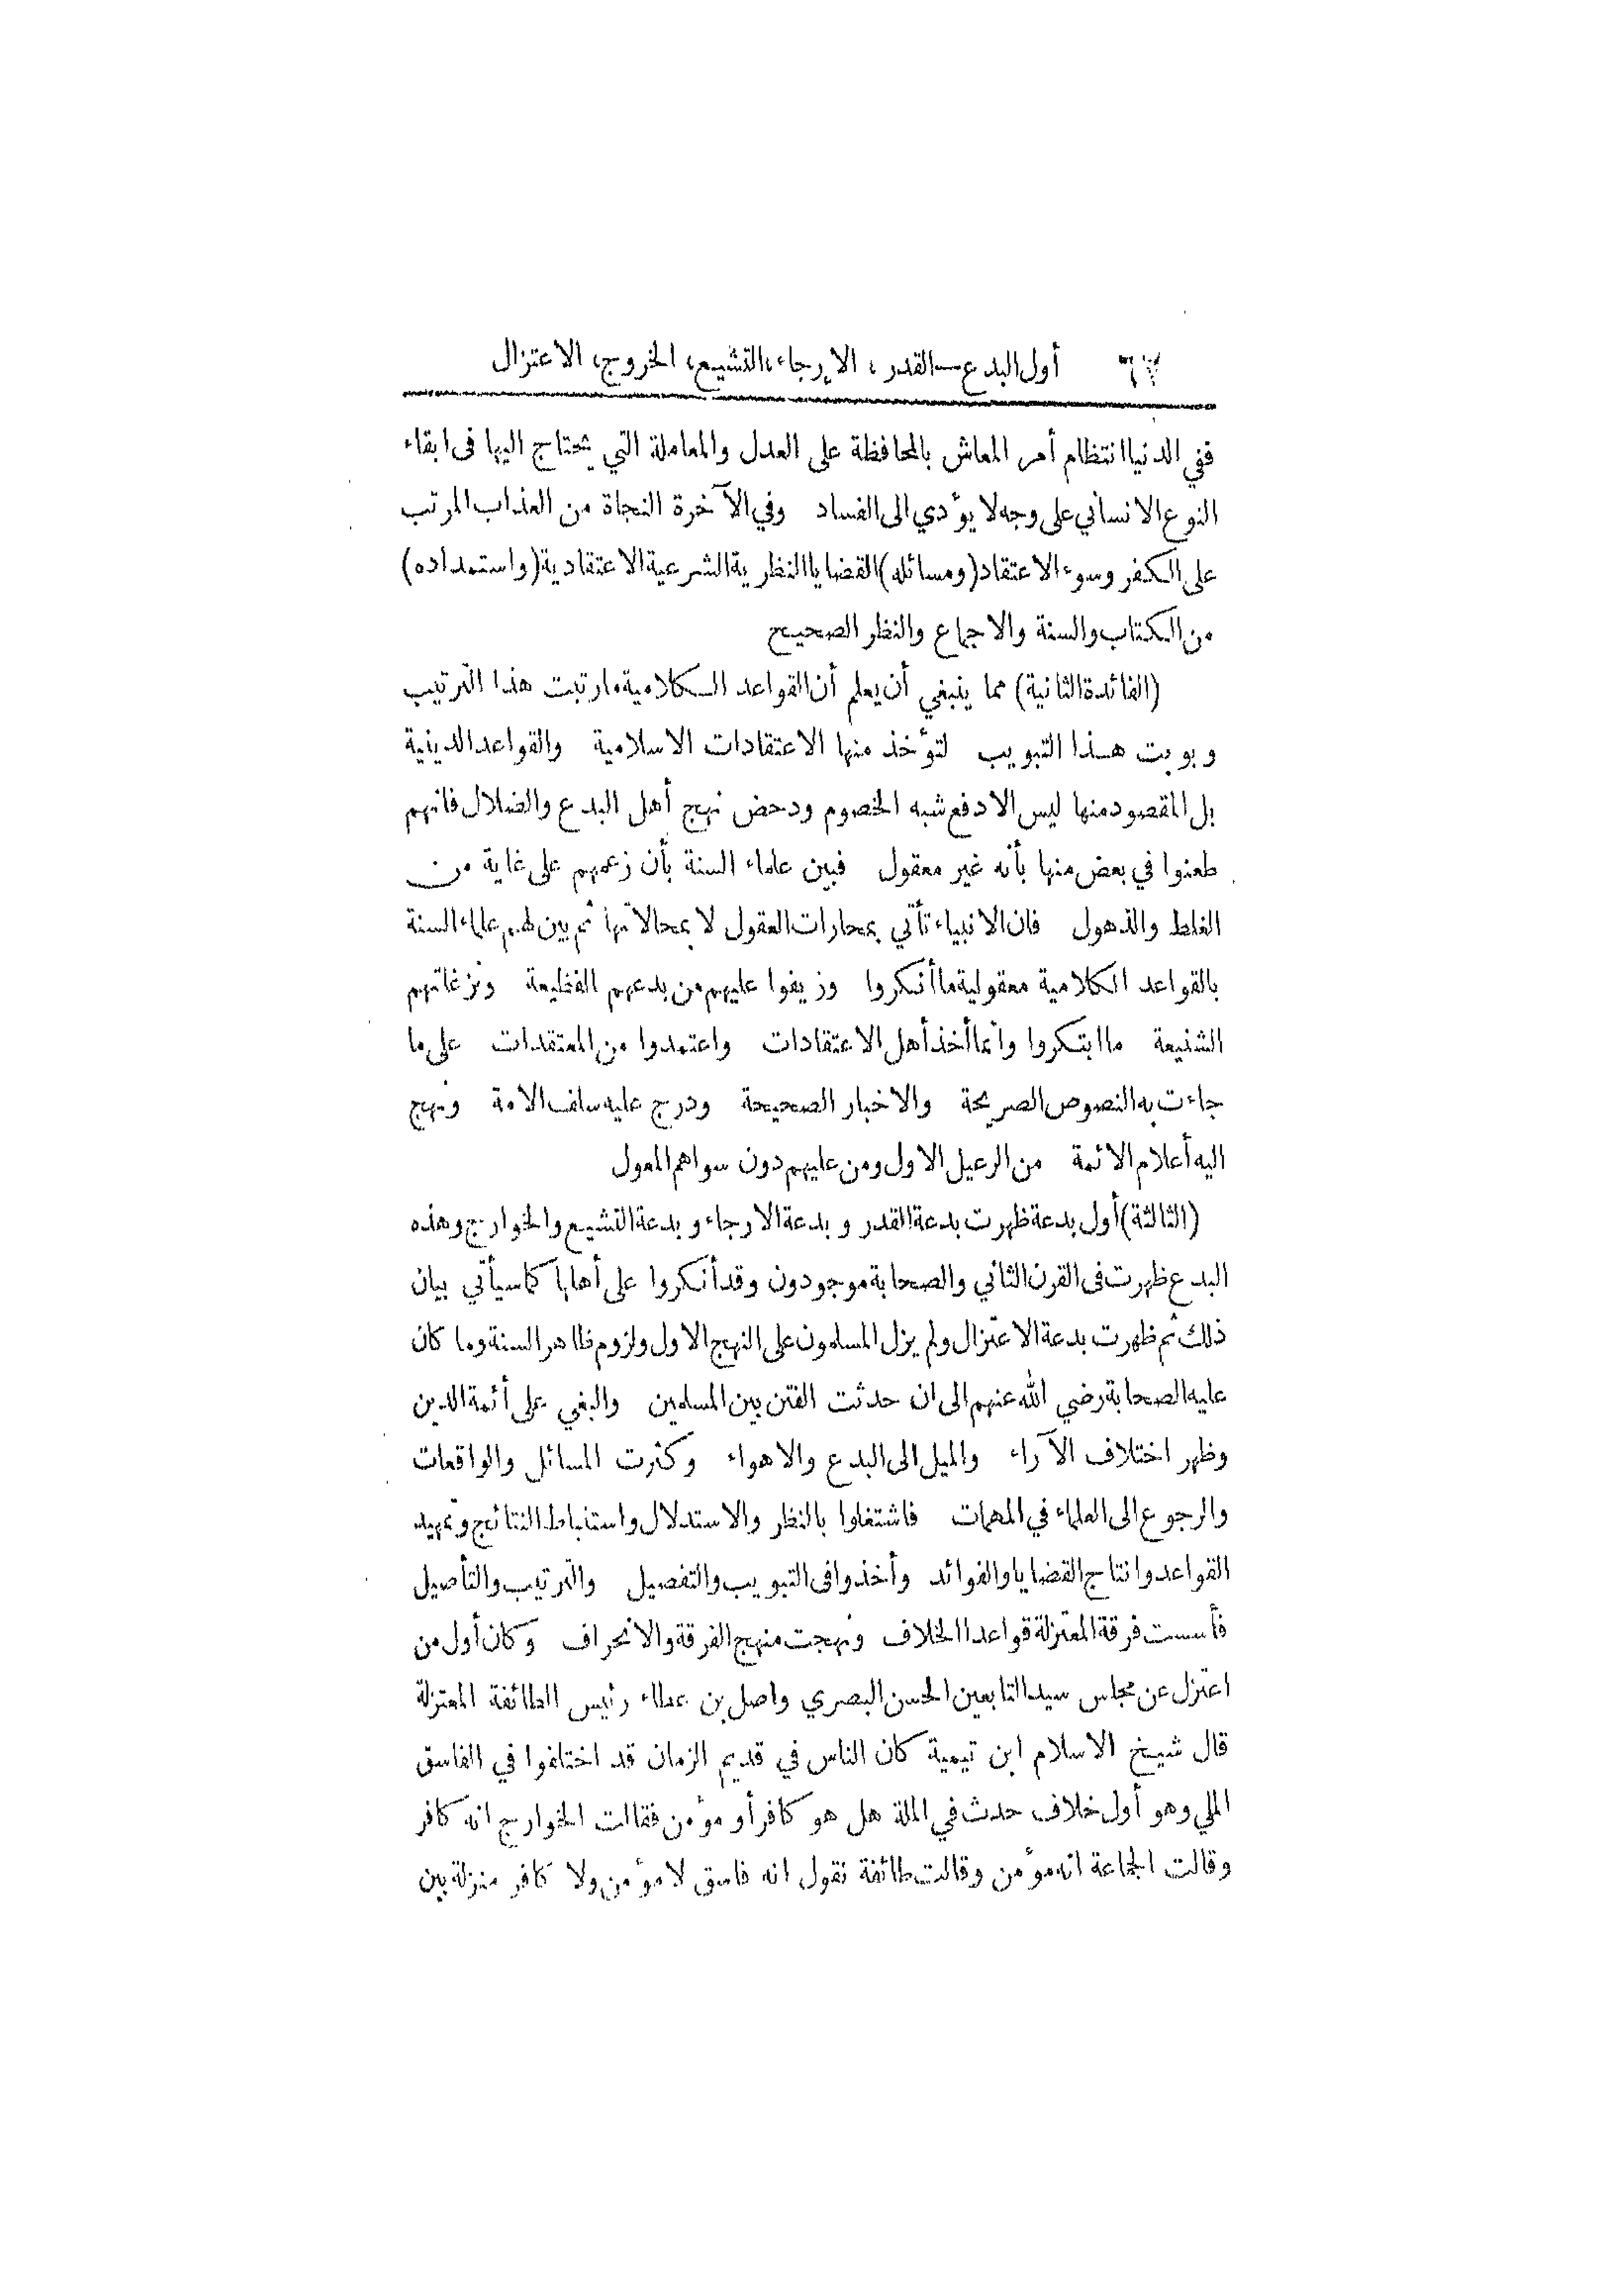 أول البدع — القدر ، الإرجاء ، التشيع ، الخروج ، الاعتزال
ففي الدنيا انتظام أمر المعاش بالمحافظة على العدل والمعاملة التي يحتاج اليها في ابقاء
النوع الانساني على وجه لا يؤدي الى الفساد وفي الآخرة النجاة من العذاب المرتب
على الكفر وسوء الاعتقاد (ومسائله) القضايا النظرية الشرعية الاعتقادية (واستمداده)
من الكتاب والسنة والاجماع والنظر الصحيح
(الفائدة الثانية) مما ينبغي أن يعلم أن القواعد الكلامية ما رتبت هذا الترتيب
وبوبت هذا التبويب لتؤخذ منها الاعتقادات الاسلامية والقواعد الدينية
بل المقصود منها ليس الا دفع شبه الخصوم ودحض نهج أهل البدع والضلال فانهم
طعنوا في بعض منها بأنه غير معقول فبين علماء السنة بأن زعمهم على غاية من
الغلط والذهول فان الانبياء تأتي بمحارات العقول لا بمحالاتها ثم بين لهم علماء السنة
بالقواعد الكلامية معقولية ما أنكروا وزيفوا عليهم من بدعهم الفظيعة ونزغاتهم
الشنيعة ما ابتكروا وانما أخذ أهل الاعتقادات واعتمدوا من المعتقدات على ما
جاءت به النصوص الصريحة والاخبار الصحيحة ودرج عليه سلف الامة ونهج
اليه أعلام الائمة من الرعيل الاول ومن عليهم دون سواهم المعول
(الثالثة) أول بدعة ظهرت بدعة القدر وبدعة الارجاء وبدعة التشيع والخوارج وهذه
البدع ظهرت في القرن الثاني والصحابة موجودون وقد أنكروا على أهلها كما سيأتي بيان
ذلك ثم ظهرت بدعة الاعتزال ولم يزل المسلمون على النهج الاول ولزوم ظاهر السنة وما كان
عليه الصحابة رضي الله عنهم الى ان حدثت الفتن بين المسلمين والبغي على أئمة الدين
وظهر اختلاف الآراء والميل الى البدع والاهواء وكثرت المسائل والواقعات
والرجوع الى العلماء في المهمات فاشتغلوا بالنظر والاستدلال واستنباط النتائج وتمهيد
القواعد وانتاج القضايا والفوائد وأخذوا في التبويب والتفصيل والترتيب والتأصيل
فأسست فرقة المعتزلة قواعد الخلاف ونهجت منهج الفرقة والانحراف وكان أول من
اعتزل عن مجلس سيد التابعين الحسن البصري واصل بن عطاء رئيس الطائفة المعتزلة
قال شيخ الاسلام ابن تيمية كان الناس في قديم الزمان قد اختلفوا في الفاسق
الملي وهو أول خلاف حدث في الملة هل هو كافر أو مؤمن فقالت الخوارج انه كافر
وقالت الجماعة انه مؤمن وقالت طائفة نقول انه فاسق لا مؤمن ولا كافر منزلة بين